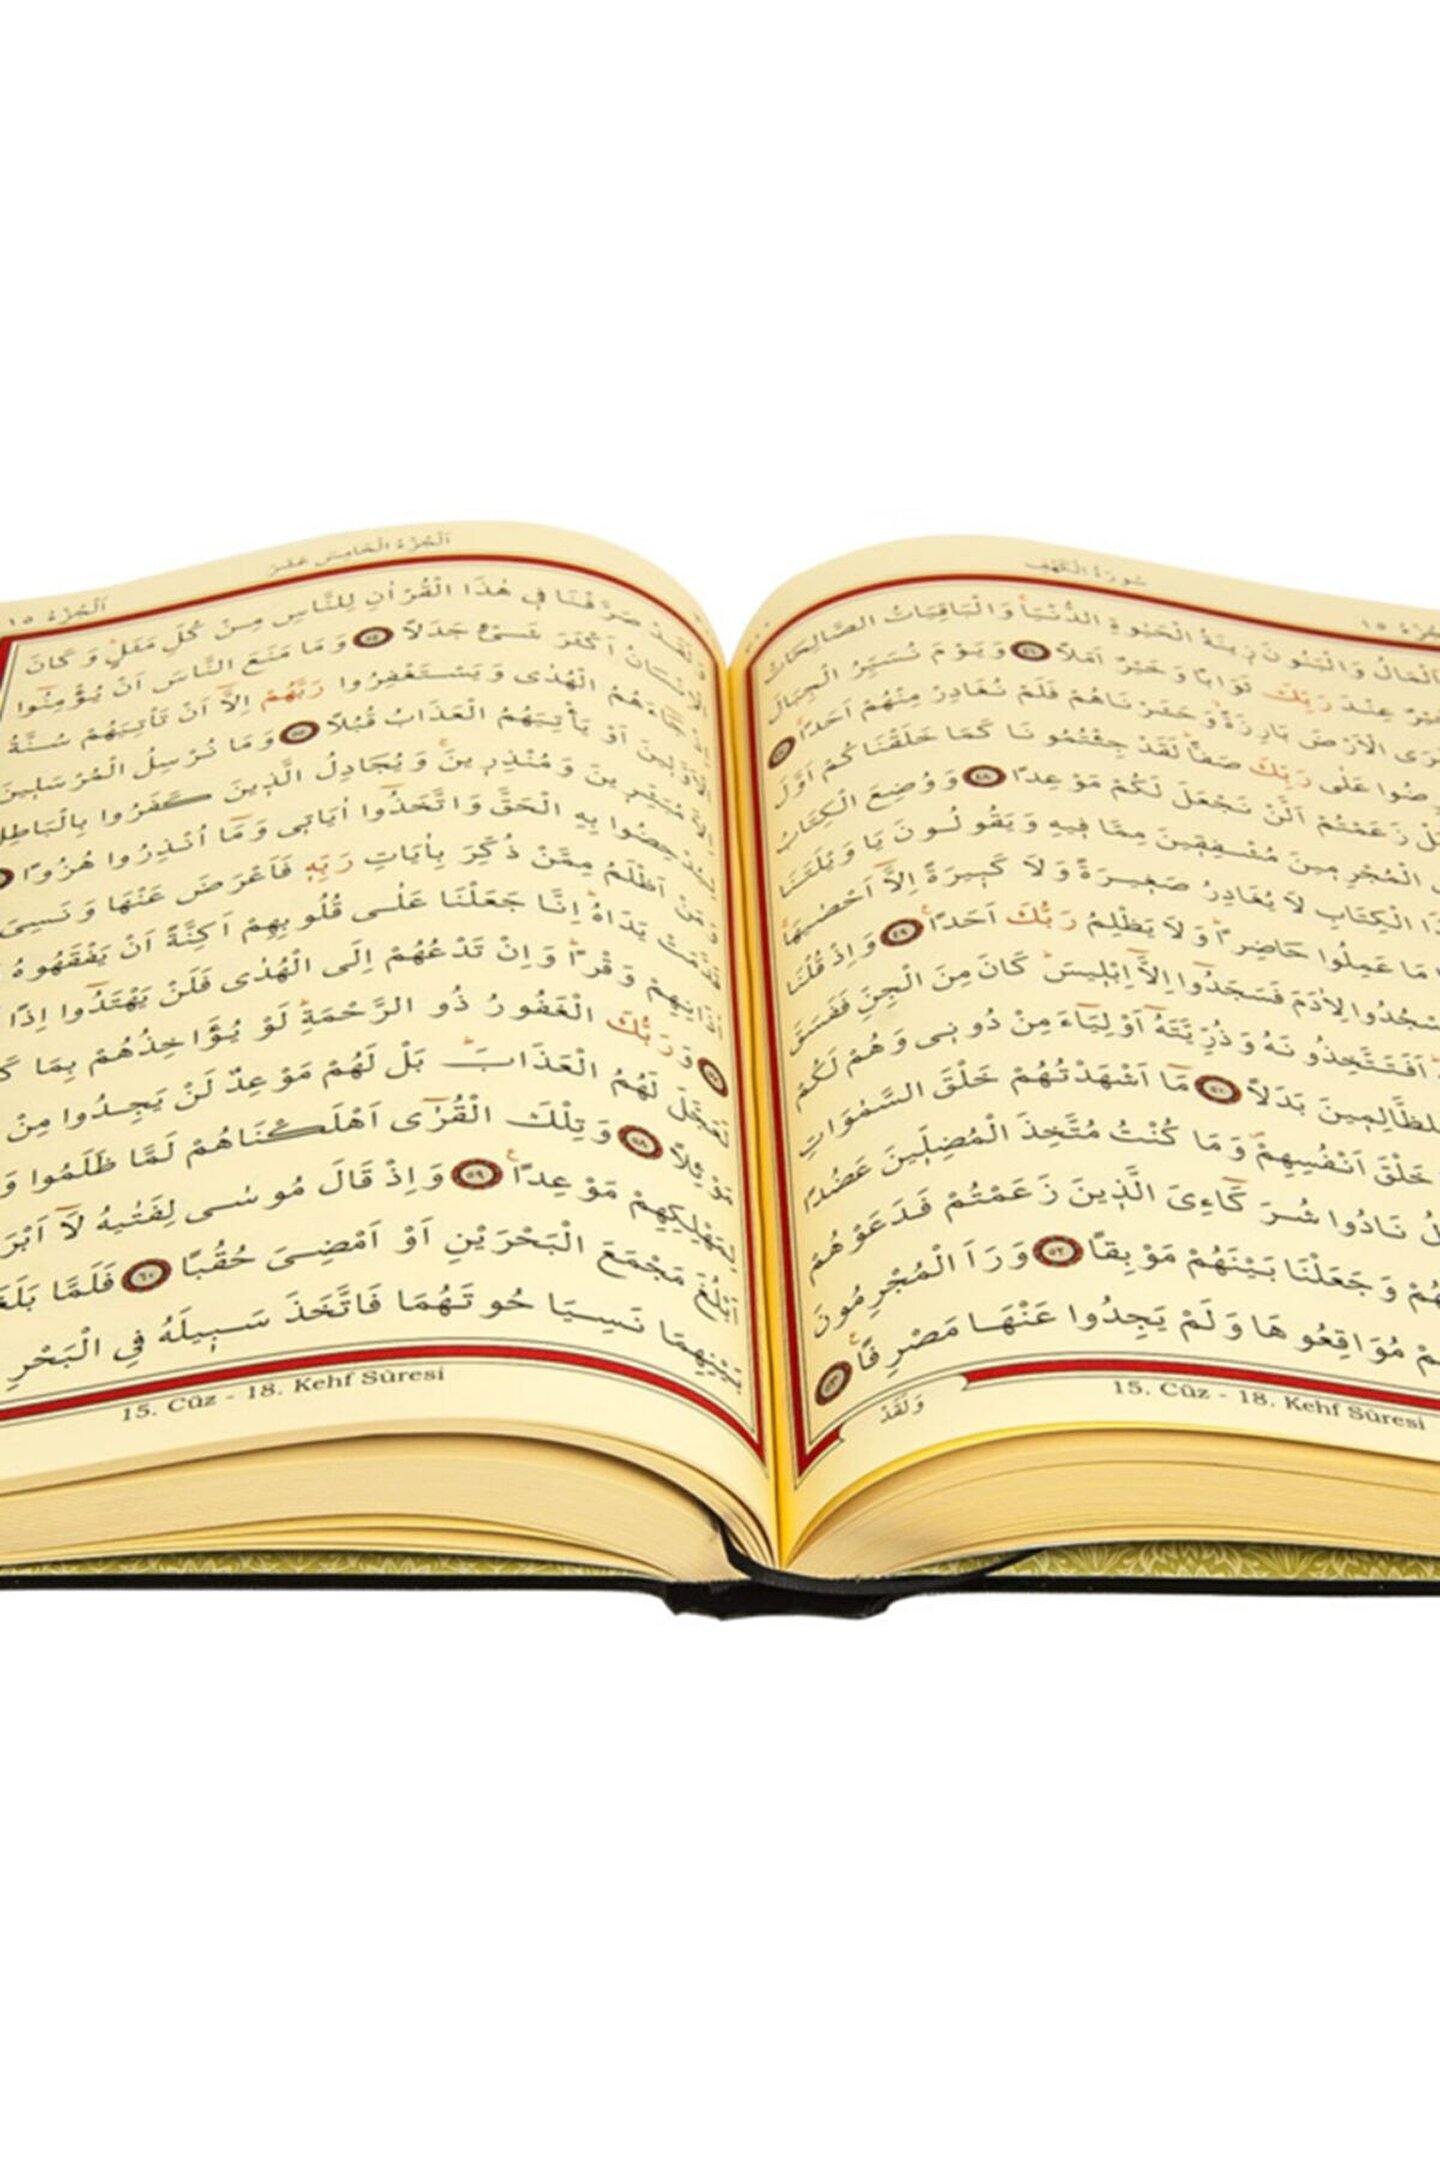 سُورَةُ الْكَهْفِ
اَلْجُزْءُ ١٥
الْمَالُ وَالْبَنُونَ زٖينَةُ الْحَيٰوةِ الدُّنْيَاۚ وَالْبَاقِيَاتُ الصَّالِحَاتُ
خَيْرٌ عِنْدَ رَبِّكَ ثَوَابًا وَخَيْرٌ اَمَلًا ﴿٤٦﴾ وَيَوْمَ نُسَيِّرُ الْجِبَالَ
وَتَرَى الْاَرْضَ بَارِزَةًۙ وَحَشَرْنَاهُمْ فَلَمْ نُغَادِرْ مِنْهُمْ اَحَدًاۚ ﴿٤٧﴾
عَلٰى رَبِّكَ صَفًّاۜ لَقَدْ جِئْتُمُونَا كَمَا خَلَقْنَاكُمْ اَوَّلَ
بَلْ زَعَمْتُمْ اَلَّنْ نَجْعَلَ لَكُمْ مَوْعِدًا ﴿٤٨﴾ وَوُضِعَ الْكِتَابُ
الْمُجْرِمٖينَ مُشْفِقٖينَ مِمَّا فٖيهِ وَيَقُولُونَ يَا وَيْلَتَنَا
الْكِتَابِ لَا يُغَادِرُ صَغٖيرَةً وَلَا كَبٖيرَةً اِلَّٓا اَحْصٰيهَاۚ
مَا عَمِلُوا حَاضِرًاۜ وَلَا يَظْلِمُ رَبُّكَ اَحَدًا ﴿٤٩﴾ وَاِذْ قُلْنَا
اسْجُدُوا لِاٰدَمَ فَسَجَدُٓوا اِلَّٓا اِبْلٖيسَۜ كَانَ مِنَ الْجِنِّ فَفَسَقَ
اَفَتَتَّخِذُونَهُ وَذُرِّيَّتَهُٓ اَوْلِيَٓاءَ مِنْ دُونٖى وَهُمْ لَكُمْ
لِلظَّالِمٖينَ بَدَلًا ﴿٥٠﴾ مَٓا اَشْهَدْتُهُمْ خَلْقَ السَّمٰوَاتِ
خَلْقَ اَنْفُسِهِمْۖ وَمَا كُنْتُ مُتَّخِذَ الْمُضِلّٖينَ عَضُدًا
نَادُوا شُرَكَٓاءِىَ الَّذٖينَ زَعَمْتُمْ فَدَعَوْهُمْ
وَجَعَلْنَا بَيْنَهُمْ مَوْبِقًا ﴿٥٢﴾ وَرَاَ الْمُجْرِمُونَ
مُوَاقِعُوهَا وَلَمْ يَجِدُوا عَنْهَا مَصْرِفًا ﴿٥٣﴾
وَلَقَدْ
15. Cüz - 18. Kehf Sûresi
اَلْجُزْءُ الْخَامِسَ عَشَرَ
اَلْجُزْءُ ١٥
وَلَقَدْ صَرَّفْنَا فٖى هٰذَا الْقُرْاٰنِ لِلنَّاسِ مِنْ كُلِّ مَثَلٍۜ وَكَانَ
الْاِنْسَانُ اَكْثَرَ شَىْءٍ جَدَلًا ﴿٥٤﴾ وَمَا مَنَعَ النَّاسَ اَنْ يُؤْمِنُٓوا
جَٓاءَهُمُ الْهُدٰى وَيَسْتَغْفِرُوا رَبَّهُمْ اِلَّٓا اَنْ تَأْتِيَهُمْ سُنَّةُ
الْاَوَّلٖينَ اَوْ يَأْتِيَهُمُ الْعَذَابُ قُبُلًا ﴿٥٥﴾ وَمَا نُرْسِلُ الْمُرْسَلٖينَ
مُبَشِّرٖينَ وَمُنْذِرٖينَۚ وَيُجَادِلُ الَّذٖينَ كَفَرُوا بِالْبَاطِلِ
لِيُدْحِضُوا بِهِ الْحَقَّ وَاتَّخَذُٓوا اٰيَاتٖى وَمَٓا اُنْذِرُوا هُزُوًا
اَظْلَمُ مِمَّنْ ذُكِّرَ بِاٰيَاتِ رَبِّهٖ فَاَعْرَضَ عَنْهَا وَنَسِىَ
قَدَّمَتْ يَدَاهُۜ اِنَّا جَعَلْنَا عَلٰى قُلُوبِهِمْ اَكِنَّةً اَنْ يَفْقَهُوهُ
اٰذَانِهِمْ وَقْرًاۜ وَاِنْ تَدْعُهُمْ اِلَى الْهُدٰى فَلَنْ يَهْتَدُٓوا اِذًا
﴿٥٧﴾ وَرَبُّكَ الْغَفُورُ ذُو الرَّحْمَةِۜ لَوْ يُؤَاخِذُهُمْ بِمَا
لَعَجَّلَ لَهُمُ الْعَذَابَۜ بَلْ لَهُمْ مَوْعِدٌ لَنْ يَجِدُوا مِنْ
مَوْئِلًا ﴿٥٨﴾ وَتِلْكَ الْقُرٰٓى اَهْلَكْنَاهُمْ لَمَّا ظَلَمُوا
لِمَهْلِكِهِمْ مَوْعِدًا ﴿٥٩﴾ وَاِذْ قَالَ مُوسٰى لِفَتٰيهُ لَٓا
اَبْلُغَ مَجْمَعَ الْبَحْرَيْنِ اَوْ اَمْضِىَ حُقُبًا ﴿٦٠﴾ فَلَمَّا
بَيْنِهِمَا نَسِيَا حُوتَهُمَا فَاتَّخَذَ سَبٖيلَهُ فِى الْبَحْرِ
15. Cüz - 18. Kehf Sûresi